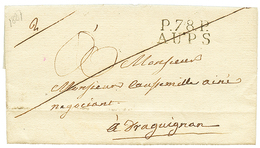 P.78.P
AUPS
2
Monsieur
Monsieur Caussemille ainé
negociant
à Draguignan